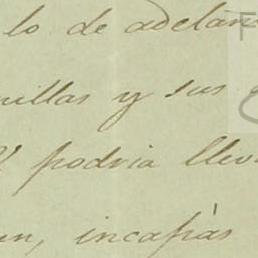 lo de adelan
illas y sus
podria llev
un, incapàs